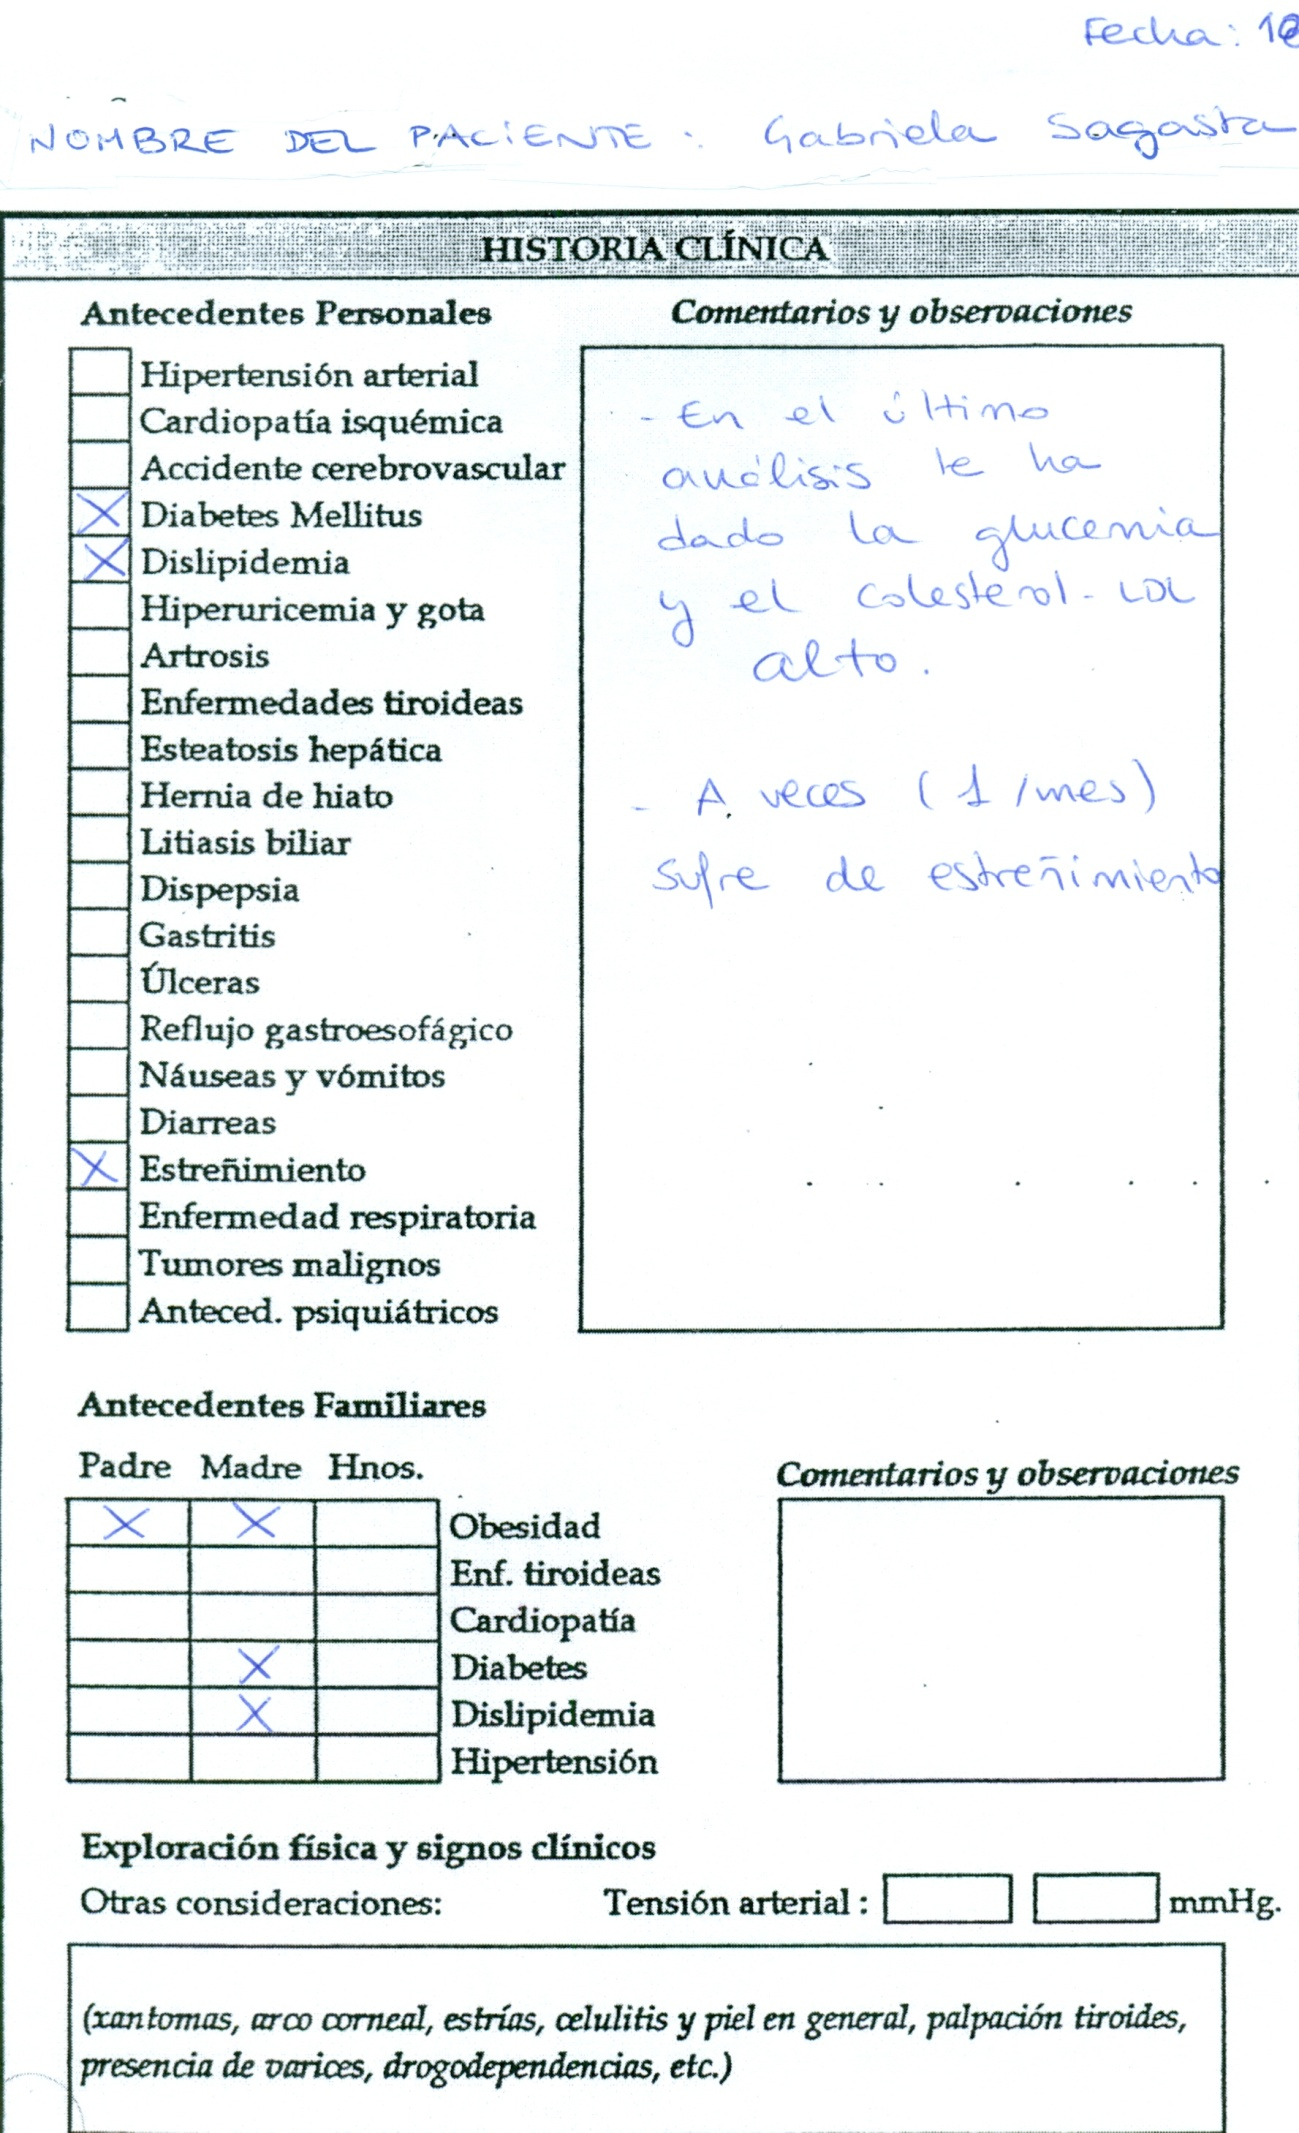 Fecha: 1
NOMBRE DEL PACIENTE: Gabriela Sagasta
HISTORIA CLÍNICA
Antecedentes Personales
Comentarios y observaciones
X
Hipertensión arterial
Cardiopatía isquémica
Accidente cerebrovascular
X Diabetes Mellitus
X Dislipidemia
Hiperuricemia y gota
Artrosis
Enfermedades tiroideas
Esteatosis hepática
Hernia de hiato
Litiasis biliar
Dispepsia
Gastritis
Úlceras
Reflujo gastroesofágico
Náuseas y vómitos
Diarreas
X Estreñimiento
Enfermedad respiratoria
Tumores malignos
Anteced. psiquiátricos
- En el último
análisis le ha
dado la glucemia
y el colesterol-LDL
alto.
- A veces (1/mes)
sufre de estreñimiento
Antecedentes Familiares
Padre Madre Hnos.
Comentarios y observaciones
X X Obesidad
Enf. tiroideas
Cardiopatía
X Diabetes
X Dislipidemia
Hipertensión
Exploración física y signos clínicos
Otras consideraciones: Tensión arterial : mmHg.
(xantomas, arco corneal, estrías, celulitis y piel en general, palpación tiroides,
presencia de varices, drogodependencias, etc.)